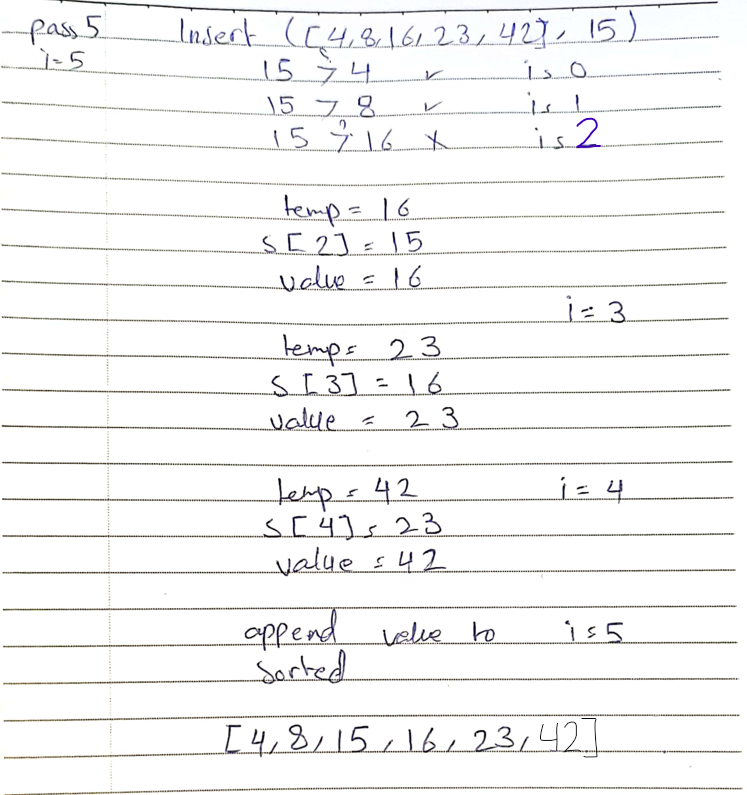 pass 5 Insert ([4,8,16,23,42], 15)
i=5 15 >? 4 ✓ i=0
15 > 8 ✓ i=1
15 >? 16 x i=2
temp = 16
S[2] = 15
value = 16
i=3
temp= 23
S[3] = 16
value = 23
temp = 42 i=4
S[4]=23
value =42
append value to i=5
Sorted
[4,8,15,16,23,42]